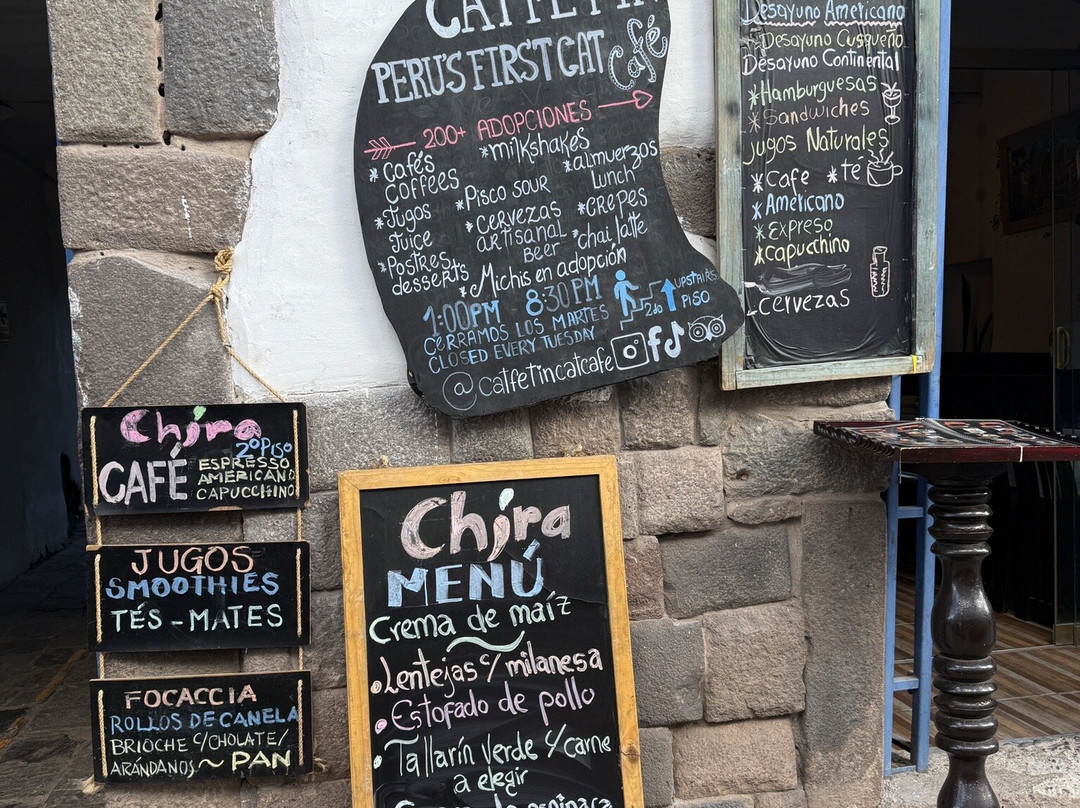 CATFETIN
PERU'S FIRST CAT Café
200+ ADOPCIONES
*Cafés
Coffees
*Jugos
Juice
*Postres
desserts
*milkshakes
*Pisco sour
*Cervezas
artisanal
Beer
*Michis en adopción
*almuerzos
Lunch
*crepes
*chai latte
1:00PM 8:30PM
CERRAMOS LOS MARTES
CLOSED EVERY TUESDAY
UPSTAIRS
2do PISO
@catfetincatcafe
Desayuno Americano
Desayuno Cusqueño
Desayuno Continental
*Hamburguesas
*Sandwiches
Jugos Naturales
*Cafe *té
*Americano
*Expreso
*capucchino
-cervezas
Chira
2º PISO
CAFÉ
ESPRESSO
AMERICANO
CAPUCCHINO
JUGOS
SMOOTHIES
TÉS - MATES
FOCACCIA
ROLLOS DE CANELA
BRIOCHE C/CHOLATE/
ARÁNDANOS ~ PAN
Chira
MENÚ
Crema de maíz
• Lentejas c/ milanesa
• Estofado de pollo
• Tallarín verde c/carne
a elegir